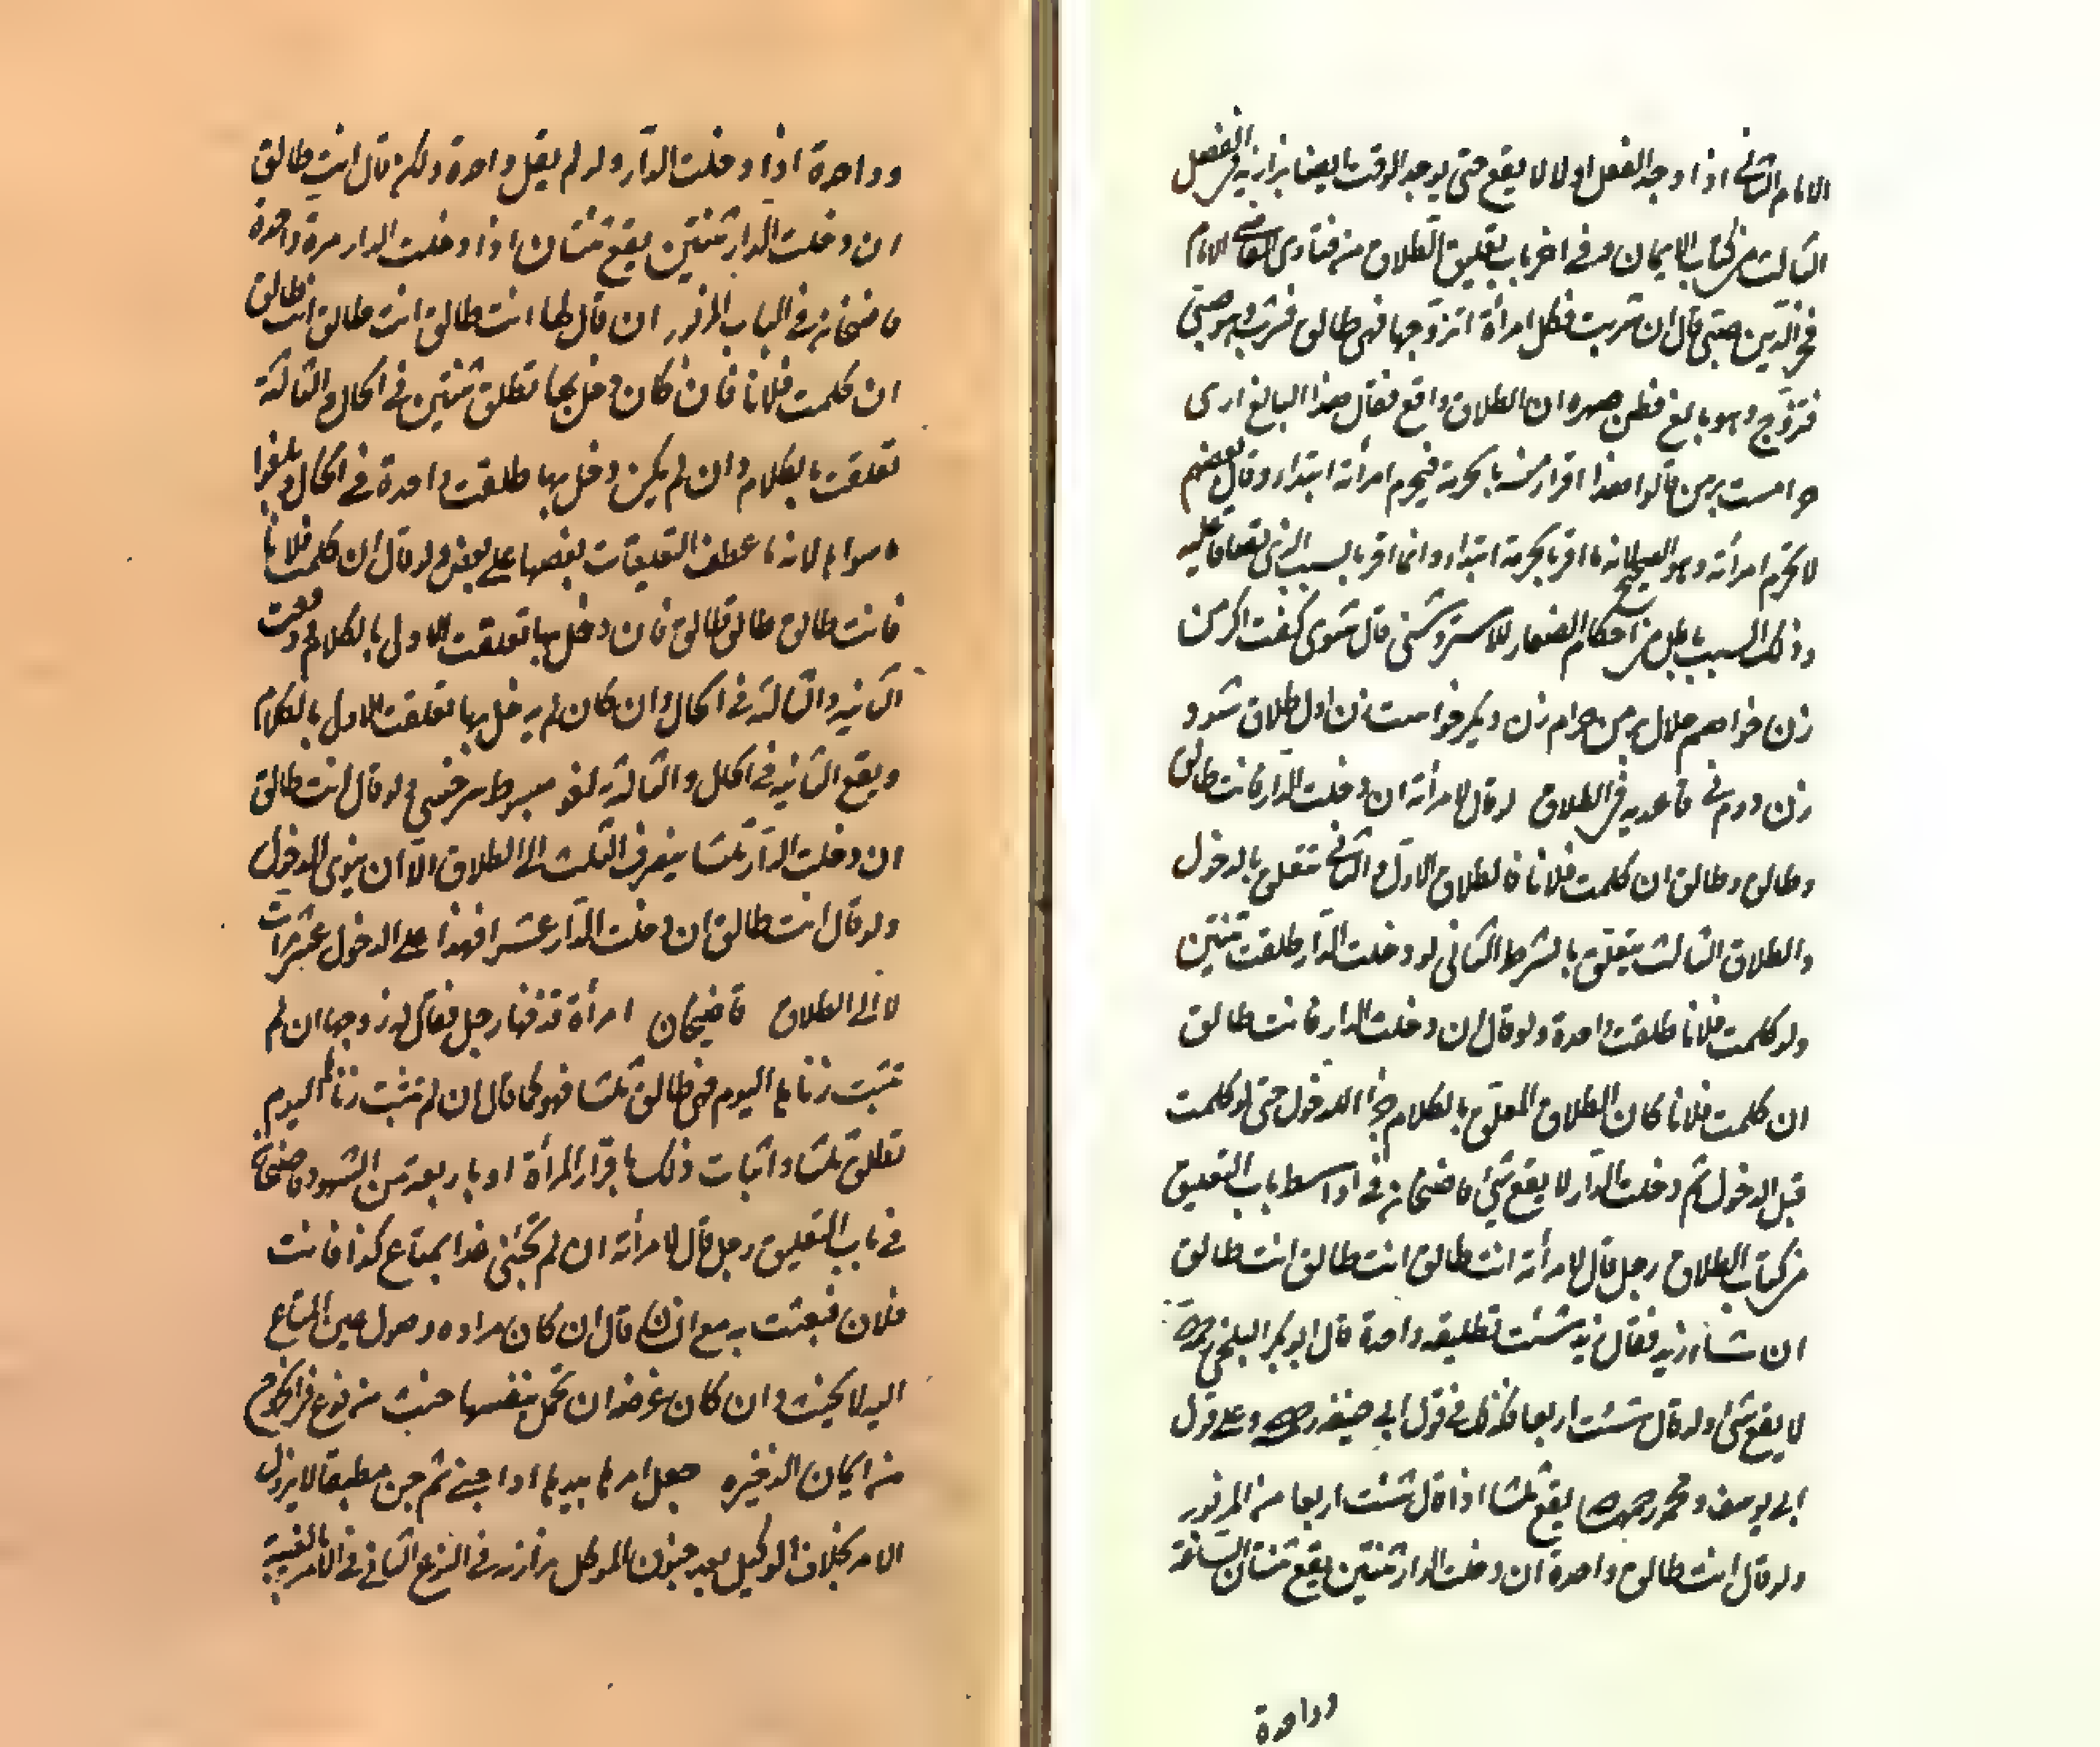 الامام الثانى اذا وجد الفعل اولا لا يقع حتى يوجد الوقت ايضا بزازيه فى الفصل
الثالث من كتاب الايمان وفى اخر باب تعليق الطلاق من فتاوى القاضى الامام
فخر الدين صبى قال ان شربت فكل امرأة اتزوجها فهى طالق فشرب وهو صبى
فتزوج وهو بالغ فظن صهره ان الطلاق واقع فقال هذا البالغ ارى
حرامست بر من قالوا هذا اقرار منه بالحرمة فيحرم امرأته ابتداء وقال بعضهم
لا تحرم امرأته وهو الصحيح لانه ما اقر بالحرمة ابتداء وانما اقر بالسبب الذى تصادقا عليه
وذلك السبب باطل من احكام الصغار للاستروشنى قال شوى كفت اكر من
زن خواهم حلال بر من حرام زن ديكر خواست زن اول طلاق شود
زن دوم نى قاعديه فى الطلاق لو قال لامرأته ان دخلت الدار فانت طالق
وطالق وطالق ان كلمت فلانا فالطلاق الاول والثانى متعلق بالدخول
والطلاق الثالث يتعلق بالشرط الثانى لو دخلت الدار طلقت ثنتين
ولو كلمت فلانا طلقت واحدة ولو قال ان دخلت الدار فانت طالق
ان كلمت فلانا كان الطلاق المعلق بالكلام جزاء الدخول حتى لو كلمت
قبل الدخول ثم دخلت الدار لا يقع شئ قاضيخان فى اواسط باب التعليق
من كتاب الطلاق رجل قال لامرأته انت طالق انت طالق انت طالق
ان شاء زيد فقال زيد شئت تطليقه واحدة قال ابو بكر البلخى رحمه
لا يقع شئ ولو قال شئت اربعا فكذلك فى قول ابى حنيفه رحمه وعلى قول
ابى يوسف ومحمد رحمهما يقع ثلثا اذا قال شئت اربعا من المزبور
ولو قال انت طالق واحدة ان دخلت الدار ثنتين يقع ثنتان الساعة
وواحدة
وواحدة اذا دخلت الدار ولو لم يقل واحدة ولكن قال انت طالق
ان دخلت الدار ثنتين يقع ثنتان اذا دخلت الدار مرة واحدة
قاضيخان فى الباب المزبور ان قال لها انت طالق انت طالق انت طالق
ان كلمت فلانا فان كان دخل بها تطلق ثنتين فى الحال والثالثة
تعلقت بالكلام وان لم يكن دخل بها طلقت واحدة فى الحال ويلغوا
ما سواه لانه ما عطف التعليقات بعضها على بعض ولو قال ان كلمت فلانا
فانت طالق طالق طالق فان دخل بها تعلقت الاولى بالكلام وقعت
الثانيه والثالثة فى الحال وان كان لم يدخل بها تعلقت الاول بالكلام
ويقع الثانيه فى الحال والثالثه لغو مبسوط سرخسى ولو قال انت طالق
ان دخلت الدار ثلثا ينصرف الثلث الى الطلاق الا ان ينوى الدخول
ولو قال انت طالق ان دخلت الدار عشرا فهذا على الدخول عشر مرات
لا الى الطلاق قاضيخان امرأة قذفها رجل فقال له زوجها ان لم
تثبت زناها اليوم فهى طالق ثلثا فهو كما قال ان لم تثبت زناها اليوم
تطلق ثلثا واثبات ذلك باقرار المرأة او باربعة من الشهود قاضيخان
فى باب التعليق رجل قال لامرأته ان لم تجئنى غدا بمتاع كذا فانت
فلان فبعثت به مع انسان قال ان كان مراده وصول عين المتاع
اليه لا يحنث وان كان غرضه ان تحمل بنفسها حنث من نوع فى الخروج
من ايمان الذخيره جعل امرها بيدها او اجنبى ثم جن مطبقا لا يزول
الامر بخلاف الوكيل بعد جنون الموكل بزازيه فى النوع الثانى فى الامر بالغيبة